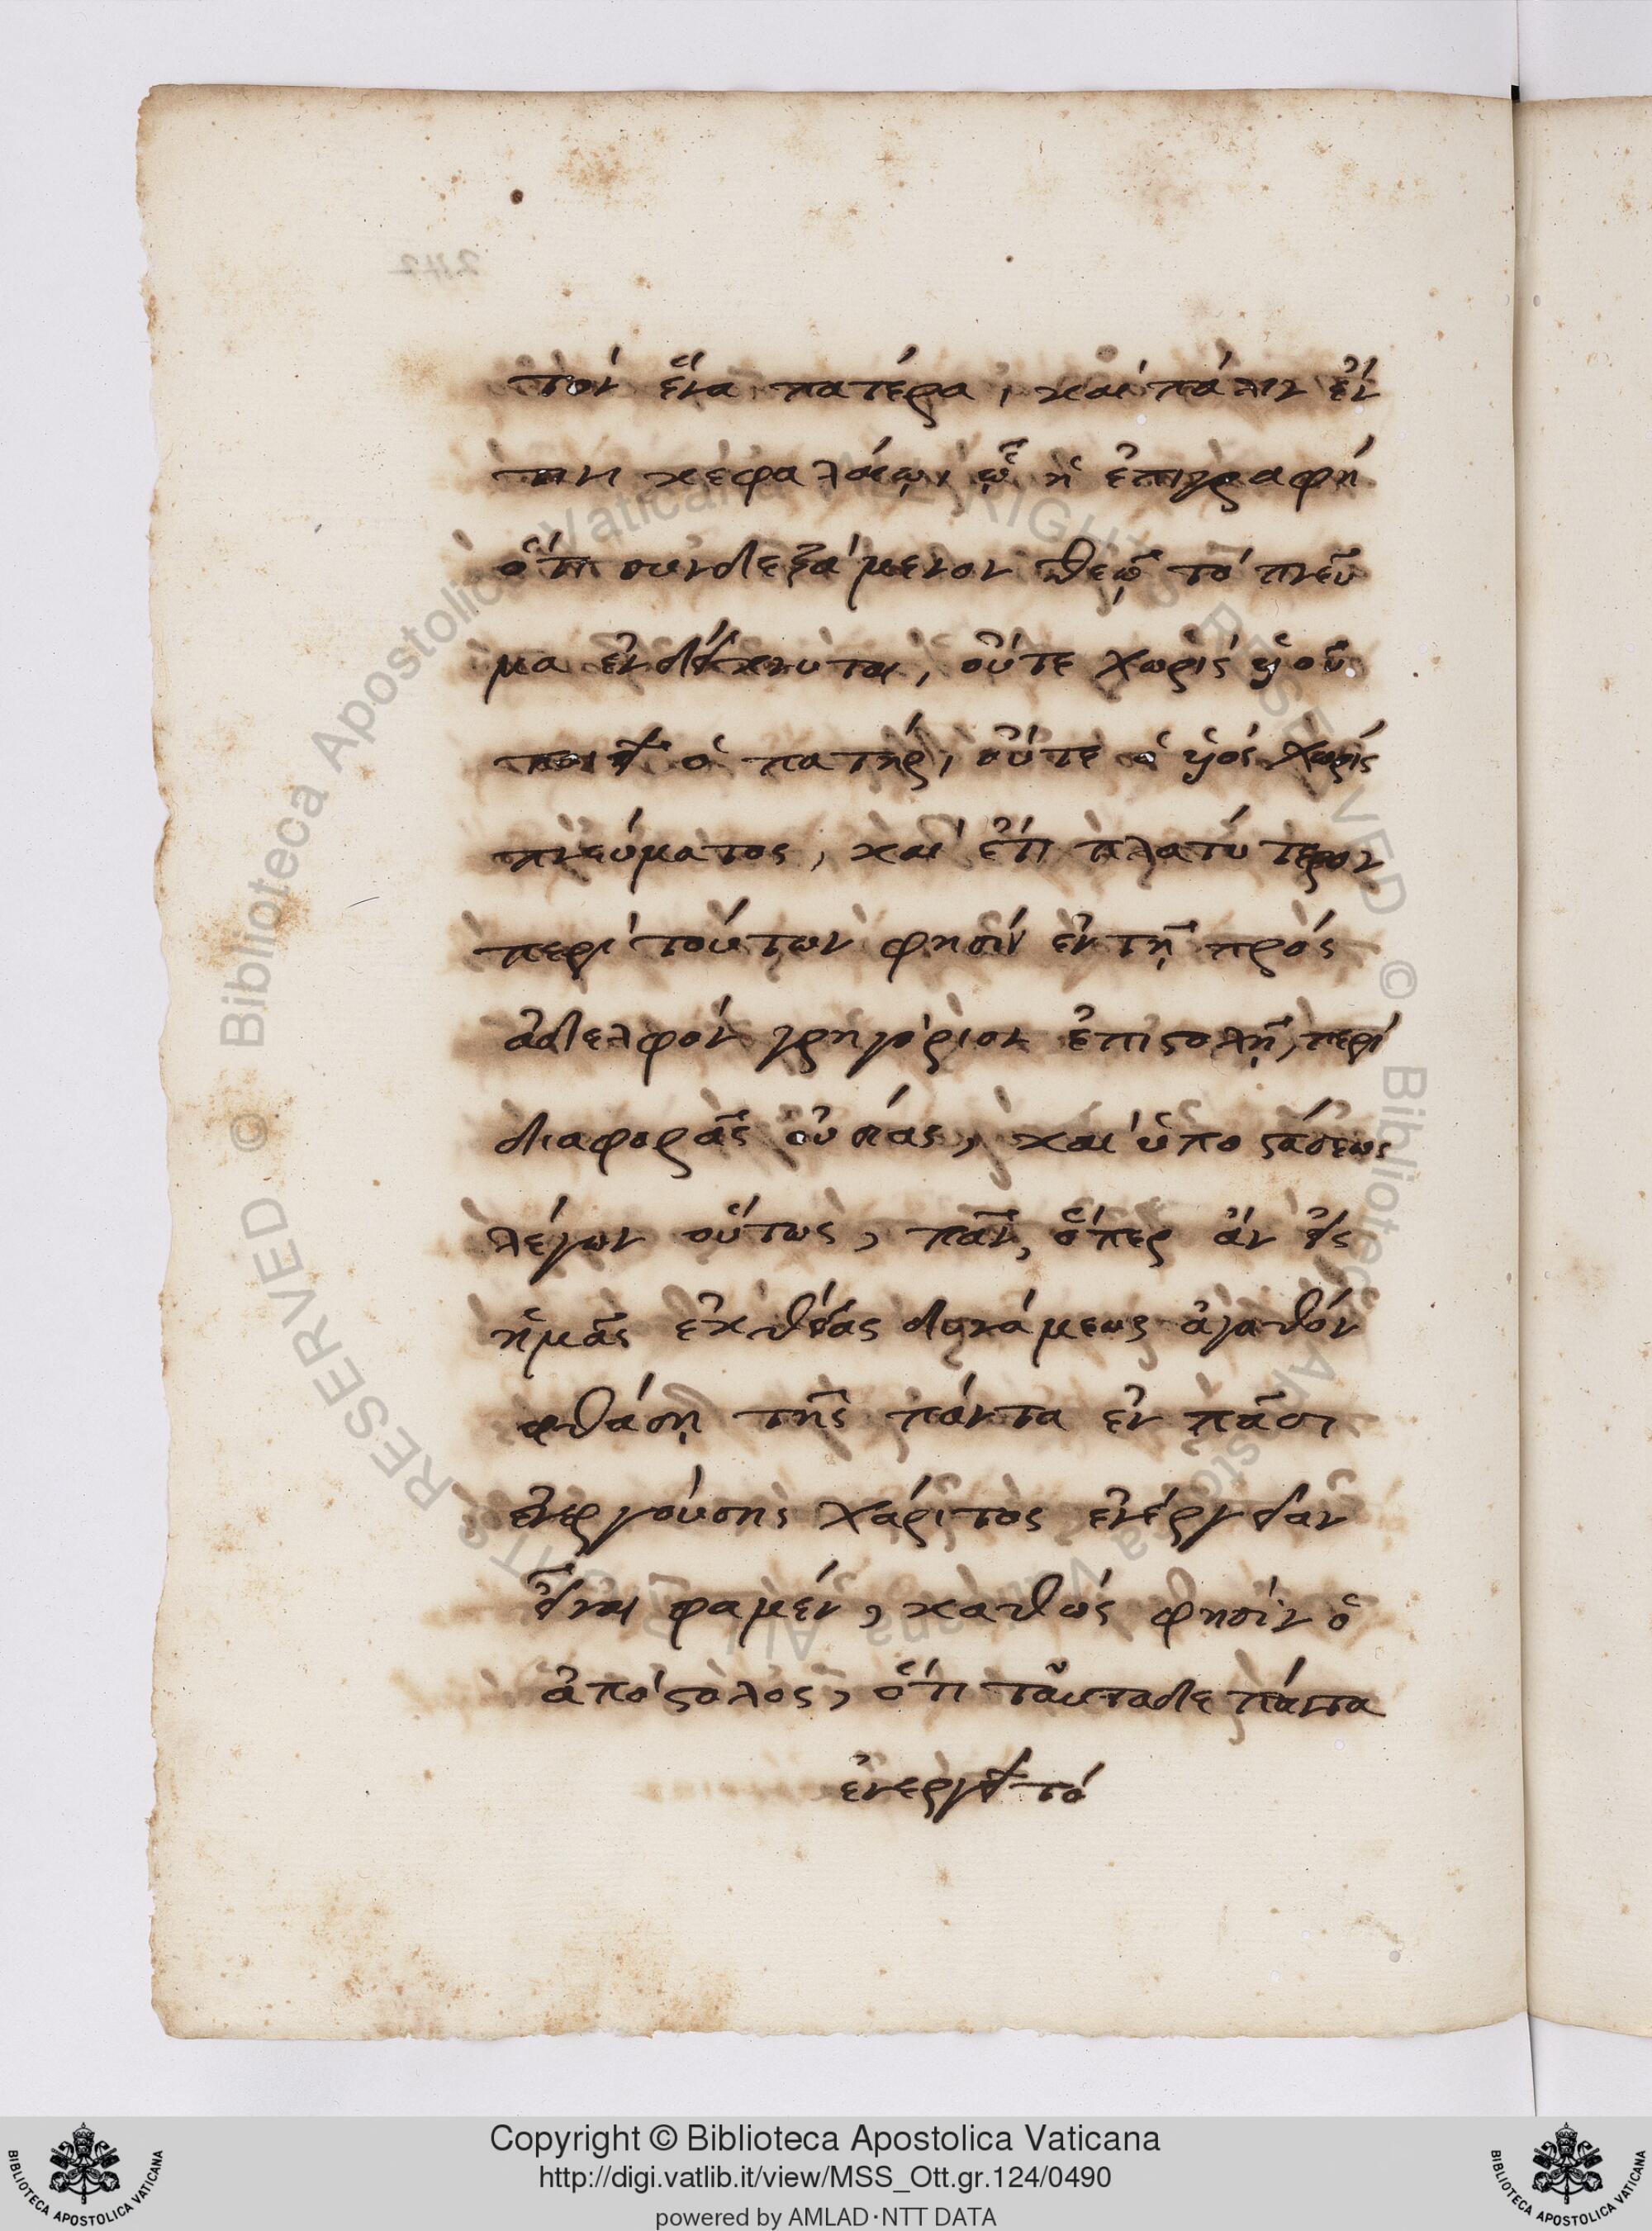 τὸν ἕνα πατέρα, καὶ πάλιν ἐν
τῶι κεφαλαίῳ, ᾧ ἡ ἐπιγραφή
ὅτι συνδεξάμενον θεῷ τὸ πνεῦ
μα ἐνδείκνυται, οὔτε χωρὶς ὑοῦ
ποιεῖ ὁ πατήρ, οὔτε ὁ ὑὸς χωρίς
πνεύματος, καὶ ἔτι πλατύτερον
περὶ τούτων φησὶν ἐν τῇ πρός
ἀδελφὸν γρηγόριον ἐπιστολῇ, περὶ
διαφορᾶς οὐσίας, καὶ ὑποστάσεως
λέγων οὕτως, πᾶν, ὅπερ ἂν εἰς
ἡμᾶς ἐκ θείας δυνάμεως ἀγαθὸν
φθάσῃ τῆς πάντα ἐν πᾶσι
ἐνεργούσης χάριτος ἐνέργειαν
εἶναι φαμὲν, καθώς φησὶν ὁ
ἀπόστολος, ὅτι ταῦτα δε πάντα
ἐνεργεῖ τὸ
Copyright © Biblioteca Apostolica Vaticana
http://digi.vatlib.it/view/MSS_Ott.gr.124/0490
powered by AMLAD·NTT DATA
BIBLIOTECA APOSTOLICA VATICANA
BIBLIOTECA APOSTOLICA VATICANA
© Biblioteca Apostolica Vaticana ALL RIGHTS RESERVED © Biblioteca Apostolica Vaticana ALL RIGHTS RESERVED